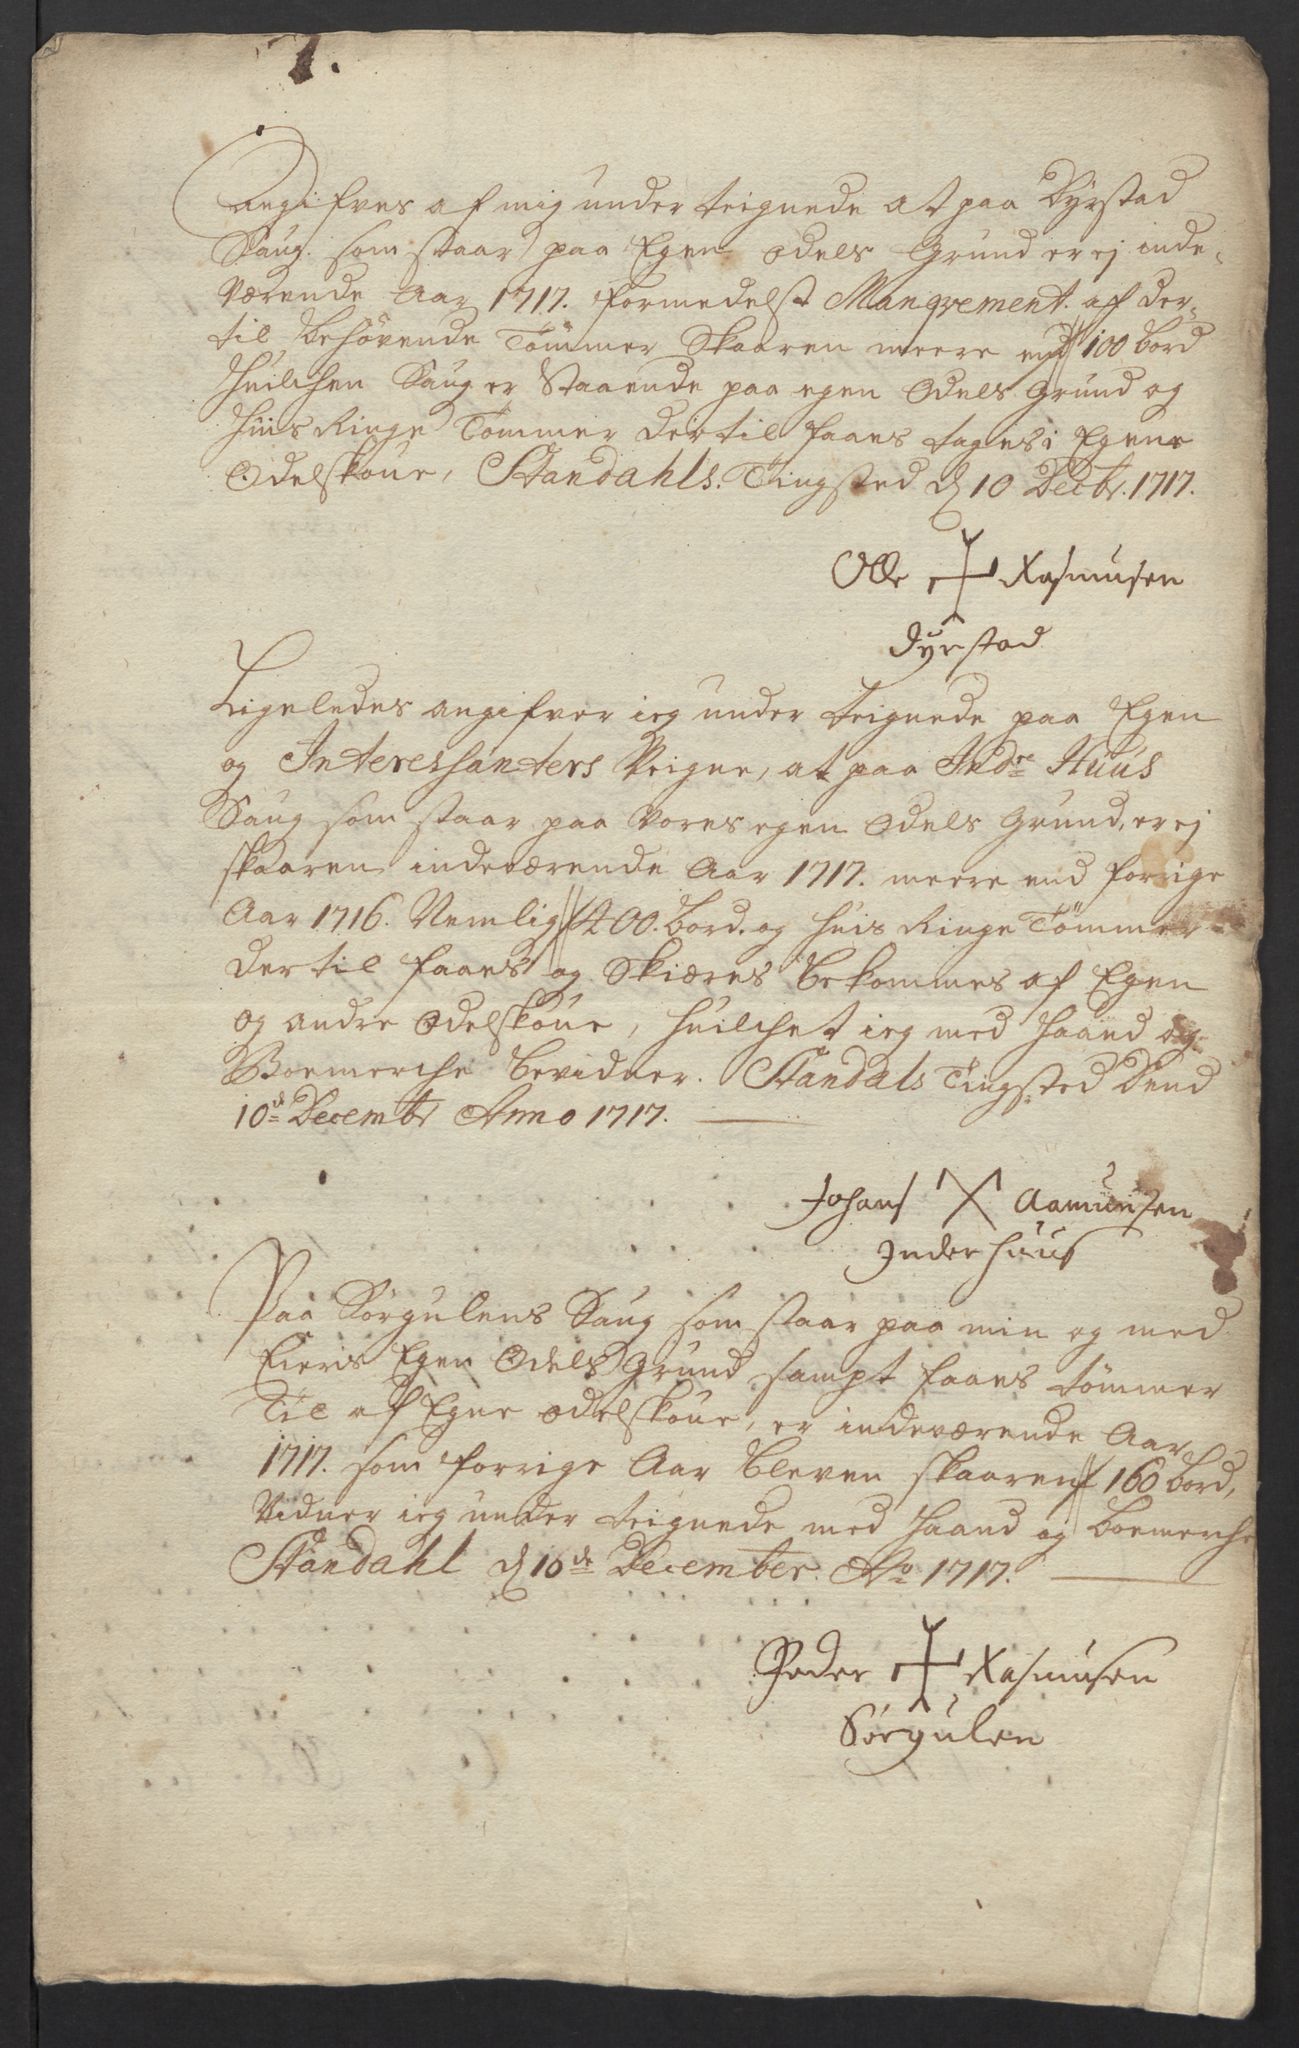 1.
Angifves af mig under teignede at paa Dyrstad
Saug som staar paa Egen Odels Grund er ej inde-
værende Aar 1717. formedelst Manqvement af der-
til behövende Tömmer Skaaren meere end 100 bord
Huilchen Saug er Staaende paa egen Odels Grund og
huis Ringe Tömmer dertil faaes tages i Egene
Odelskoue, Standahls Tingsted d 10 Decbr. 1717.
Olle Rasmusen
dyrstad
Ligeledes angifver ieg under teignede paa Egen
og Interessanters Veigne, at paa Indre Huus
Saug som staar paa vores egen Odels Grund, er ej
skaaren indeværende Aar 1717. meere end forrige
Aar 1716. Nemlig 400. bord. og huis Ringe Tömmer
der til faaes og Skiæres bekommes af Egen
og andre Odelskoue, huilchet ieg med Haand og
Boemerche bevidner. Standals Tingsted Dend
10de Decembr Anno 1717.
Johans Aamundsen
Inderhuus
Paa Sörgulens Saug som staar paa min og med
Eieris Egen Odels Grund sampt faaes tömmer
Til af Egne Odelskoue, er indeværende Aar
1717. som forrige Aar bleven skaaren 160 bord,
Vidner ieg under teignede med Haand og boemerche
Standahl d 10de December Ao 1717.
Peder Rasmusen
Sörgulen